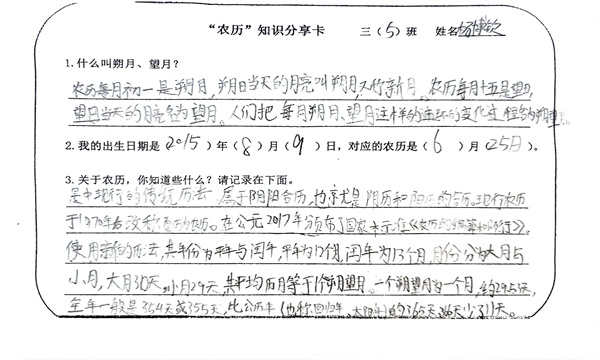 “农历”知识分享卡 三（5）班 姓名杨
1.什么叫朔月、望月？
农历每月初一是朔月，朔日当天的月亮叫朔月，又称新月。农历每月十五是望日，
望日当天的月亮名为望月。人们把每月朔月、望月这样的循环的变化过程名为朔望月。
2.我的出生日期是2015）年（8）月（9）日，对应的农历是（6）月（25日）。
3.关于农历，你知道些什么？请记录在下面。
是中现行的传统历法 属于阴阳合历，也就是阴历和阳历的 现行农历
于1970年 改称 农历。在公元2017年颁布了国家 准《农历的编算和颁行》，
使用 历法，其年份为平年与闰年，平年为12个月，闰年为13个月，月份分为大月与
小月，大月30天，小月29天，其平均历月等于1个朔望月、一个朔望月为一个月，约29.5天，
全年一般是354天或355天，比公历年（也称回归年、太阳年）的365天 少了11天。